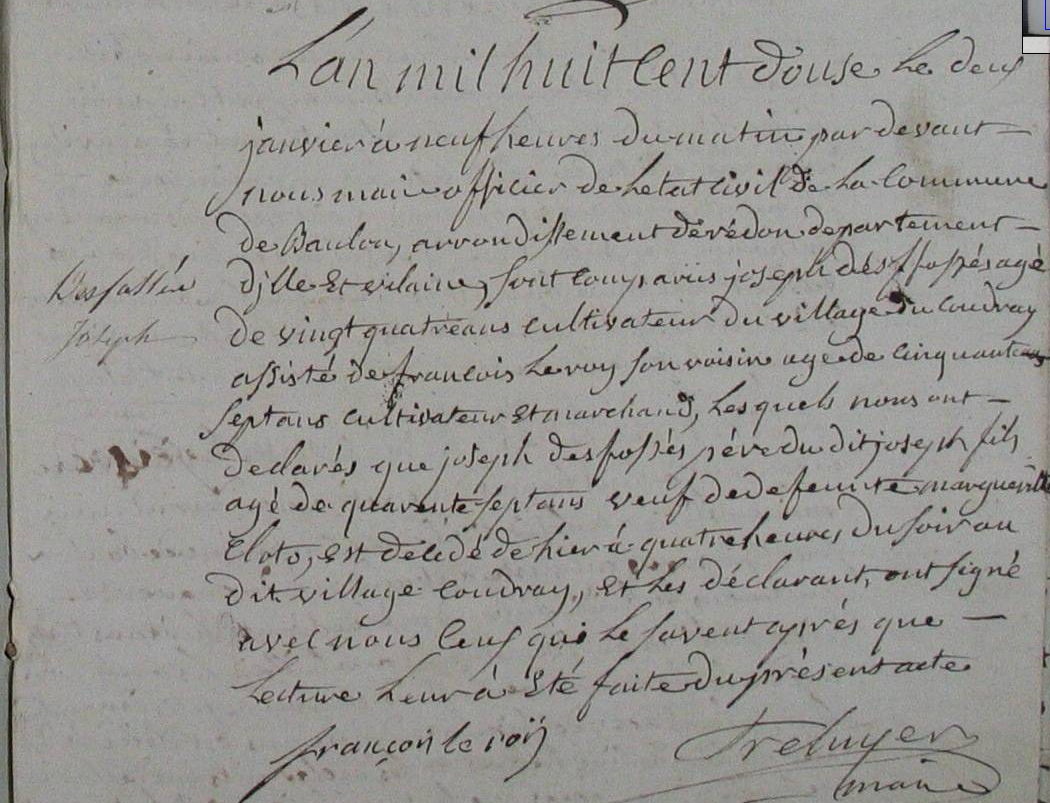 L'an mil huit Cent douse Le deux
janvier à neuf heures du matin par devant
nous maire officier de Letat Civil de La Commune
de Baulon, arrondissement de rédon departement
d'jlle Et vilaine, sont Comparüs joseph désffossés agé
Desfossés
de vingt quatre ans cultivateur du village du Coudray
Joseph
assisté de francois Le roy son voisin agé de Cinquante
Sept ans cultivateur Et marchand, Les quels nous ont
declarés que joseph desfossés pére du dit joseph fils
agé de quarente sept ans veuf de defeunte margueritte
Eloto, Est décédé de hier à quatre heures du soir au
dit village Coudray, Et Les déclarant, ont signé
avec nous Ceux qui Le savent aprés que
Lecture Leur à Eté faite du présent acte
françois le roÿ
Treluyer
maire